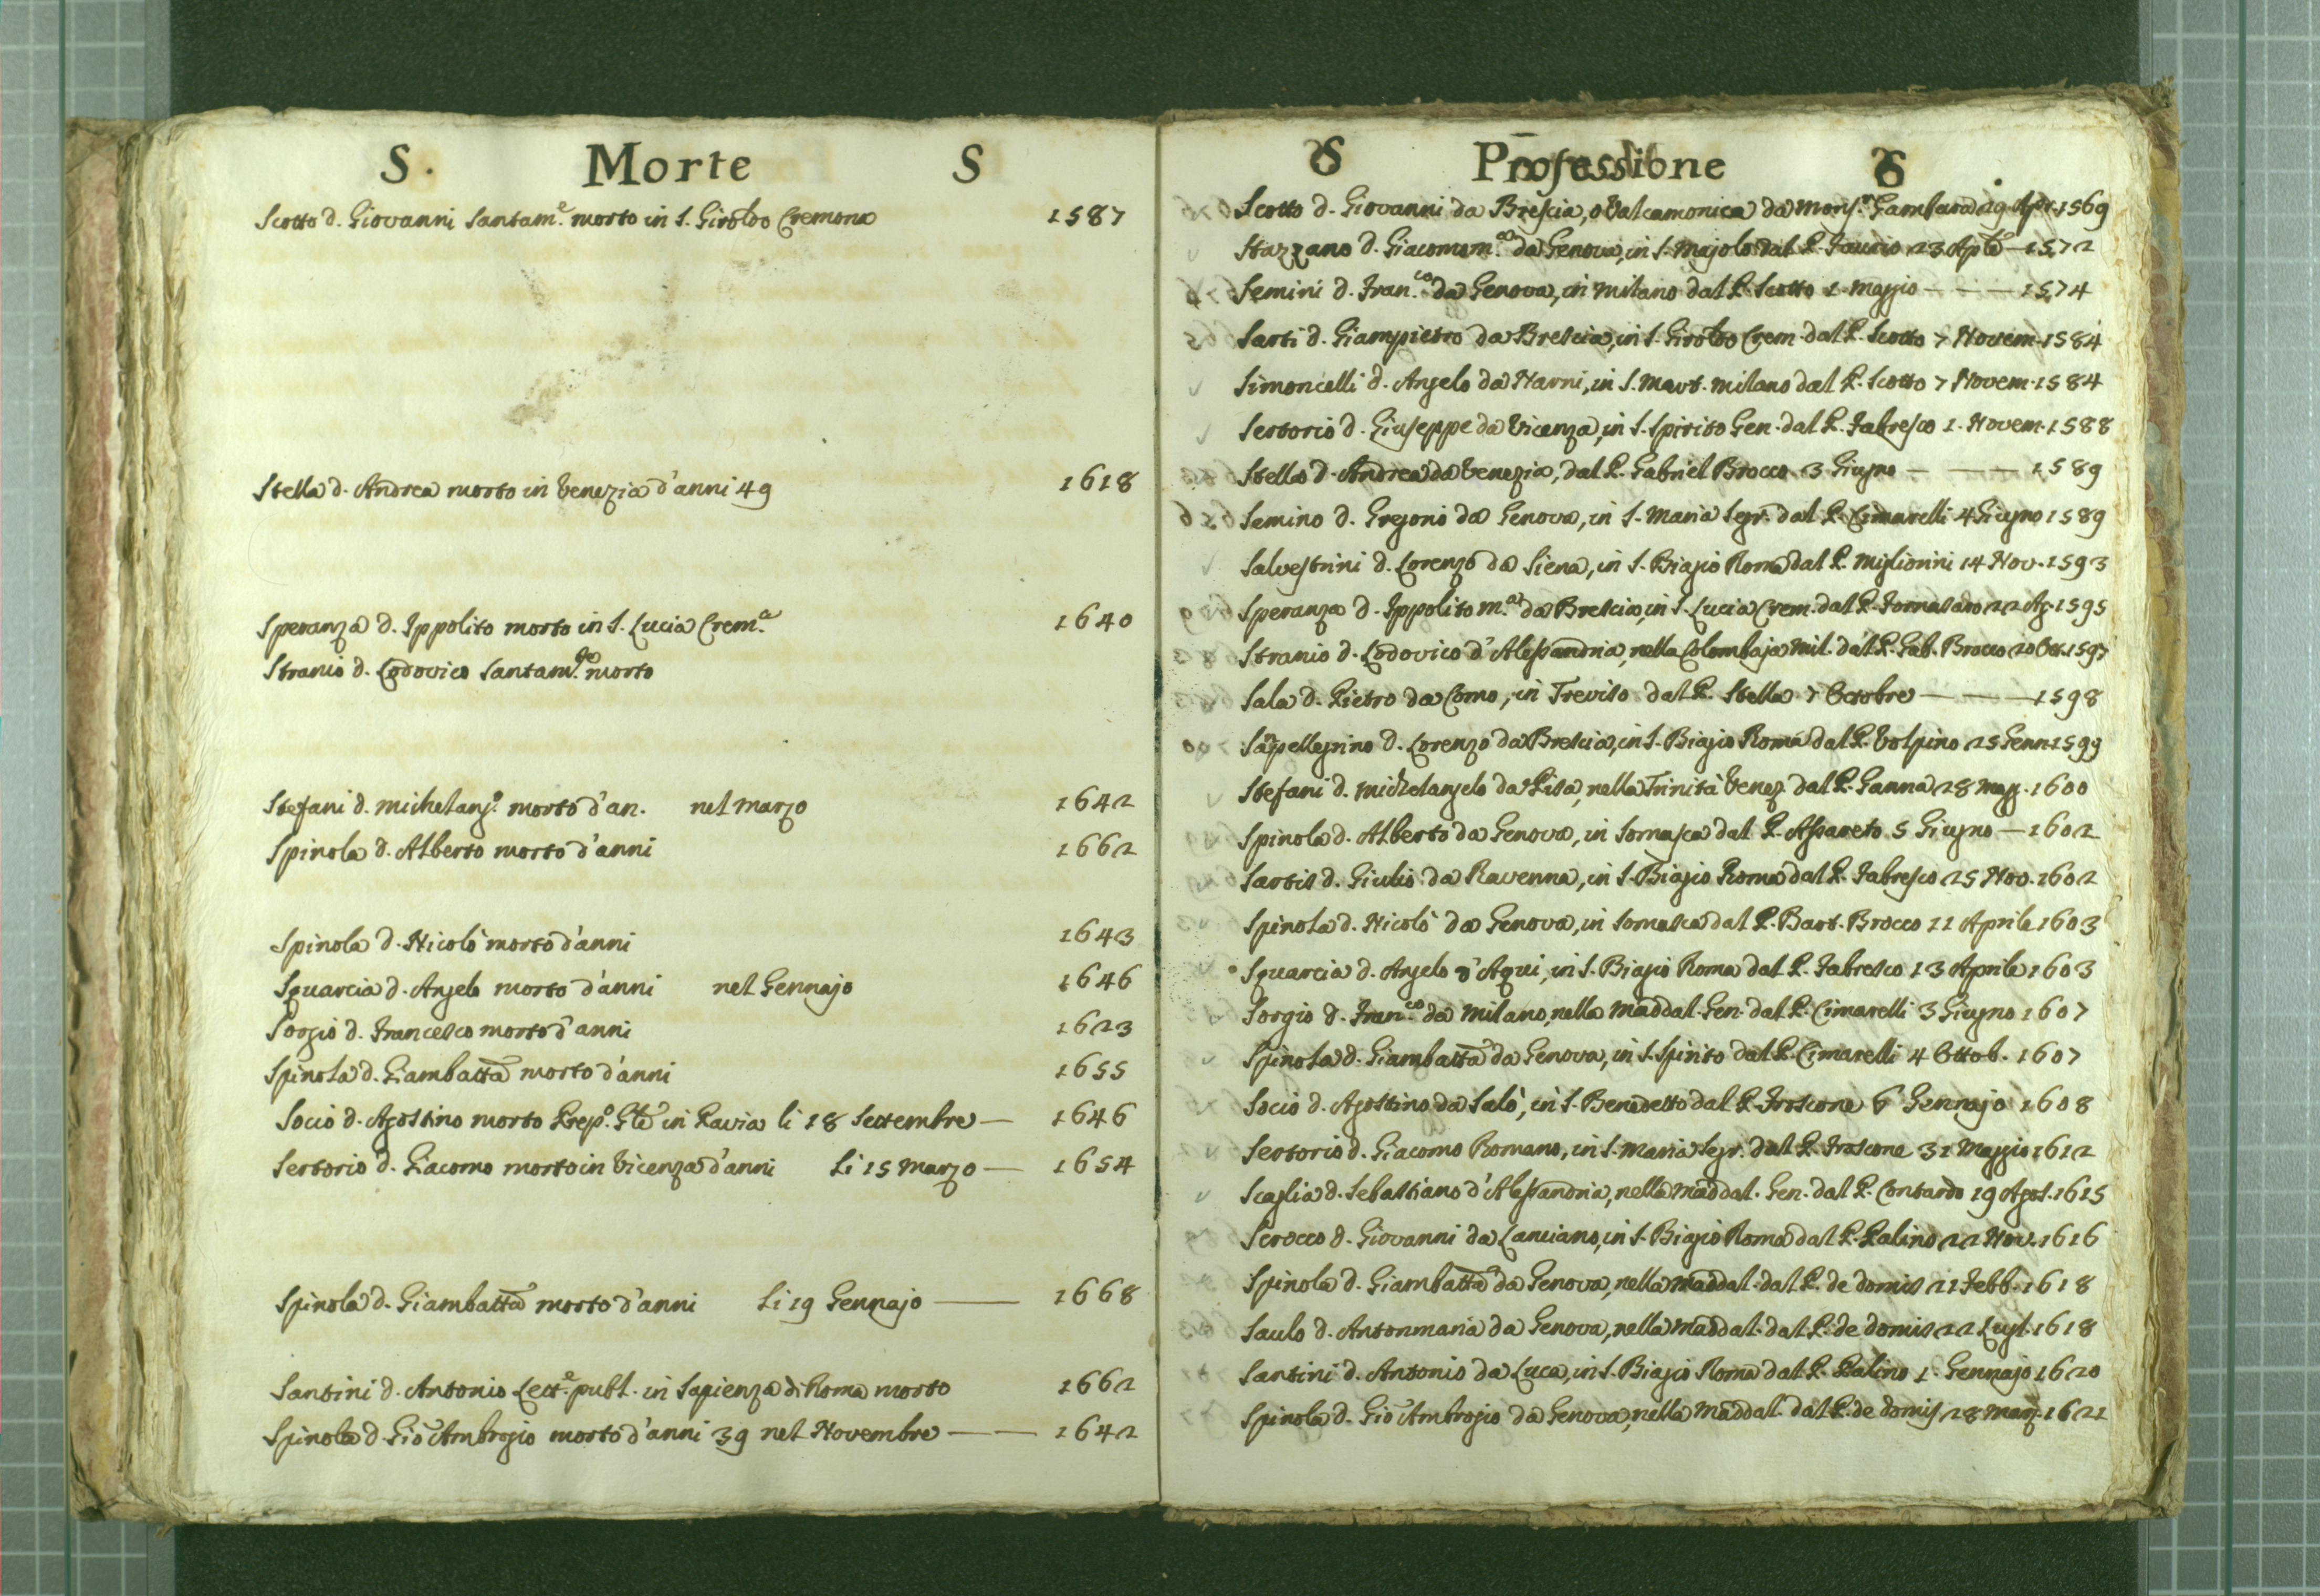 S. Morte S
Scotto d. Giovanni Santam.e morto in S. Girol.o Cremona 1587
Stella d. Andrea morto in Venezia d'anni 49 1618
Speranza d. Ippolito morto in S. Lucia Crem.a 1640
Stranio d. Lodovico Santam. morto
Stefani d. Michelang.o morto d'an. nel Marzo 1642
Spinola d. Alberto morto d'anni 1662
Spinola d. Nicolò morto d'anni 1643
Squarcia d. Angelo morto d'anni nel Gennajo 1646
Sorgio d. Francesco morto d'anni 1623
Spinola d. Giambatta morto d'anni 1655
Socio d. Agostino morto Prep.o Gle in Pavia li 18 Settembre — 1646
Sertorio d. Giacomo morto in Vicenza d'anni Li 15 Marzo — 1654
Spinola d. Giambatta morto d'anni Li 19 Gennajo — 1668
Santini d. Antonio Lett.e publ. in Sapienza di Roma morto 1662
Spinola d. Gio Ambrogio morto d'anni 39 nel Novembre — 1642
S Professione S
Scotto d. Giovanni da Brescia, o Valcamonica da Mons.r Gambara 29 Apr. 1569
Stazzano d. Giacomom.a da Genova, in S. Majolo dal P. Faurio 23 Aple — 1572
Semini d. Fran.co da Genova, in Milano dal P. Scotto 1. Maggio — 1574
Sarti d. Giampietro da Brescia, in S. Girol.o Crem. dal P. Scotto 7 Novem. 1584
Simoncelli d. Angelo da Narni, in S. Mart. Milano dal P. Scotto 7 Novem. 1584
Sertorio d. Giuseppe da Vicenza, in S. Spirito Gen. dal P. Fabresco 1. Novem. 1588
Stella d. Andrea da Venezia, dal P. Gabriel Brocco 3 Giugno — 1589
Semino d. Gregorio da Genova, in S. Maria Segr. dal P. Cimarelli 4 Giugno 1589
Salvestrini d. Lorenzo da Siena, in S. Biagio Roma dal P. Migliorini 14 Nov. 1593
Speranza d. Ippolito m.a da Brescia, in S. Lucia Crem. dal P. Tornasaro 22 Ag. 1595
Stranio d. Lodovico d'Alessandria, nella Colombaja Mil. dal P. Gab. Brocco 20 Ott. 1597
Sala d. Pietro da Como, in Treviso dal P. Stella 7 Octobre — 1598
Sanpellegrino d. Lorenzo da Brescia, in S. Biagio Roma dal P. Volpino 25 Genn. 1599
Stefani d. Michelangelo da Pisa, nella Trinità Venez. dal P. Ganna 28 Magg. 1600
Spinola d. Alberto da Genova, in Somasca dal P. Assareto 5 Giugno — 1602
Sartis d. Giulio da Ravenna, in S. Biagio Roma dal P. Fabresco 25 Nov. 1602
Spinola d. Nicolò da Genova, in Somasca dal P. Bart. Brocco 11 Aprile 1603
Squarcia d. Angelo d'Aqui, in S. Biagio Roma dal P. Fabresco 13 Aprile 1603
Sorgio d. Fran.co da Milano, nella Maddal. Gen. dal P. Cimarelli 3 Giugno 1607
Spinola d. Giambatta da Genova, in S. Spirito dal P. Cimarelli 4 Ottob. 1607
Socio d. Agostino da Salò, in S. Benedetto dal P. Froscone 6 Gennajo 1608
Sertorio d. Giacomo Romano, in S. Maria Segr. dal P. Froscone 31 Maggio 1612
Scaglia d. Sebastiano d'Alessandria, nella Maddal. Gen. dal P. Contardo 19 Agos. 1615
Scrocco d. Giovanni da Lanciano, in S. Biagio Roma dal P. Palino 22 Nov. 1616
Spinola d. Giambatta da Genova, nella Maddal. dal P. de Domis 21 Febb. 1618
Saulo d. Antonmaria da Genova, nella Maddal. dal P. de Domis 22 Lugl. 1618
Santini d. Antonio da Luca, in S. Biagio Roma dal P. Palino 1. Gennajo 1620
Spinola d. Gio Ambrogio da Genova, nella Maddal. dal P. de Domis 28 Marz. 1621